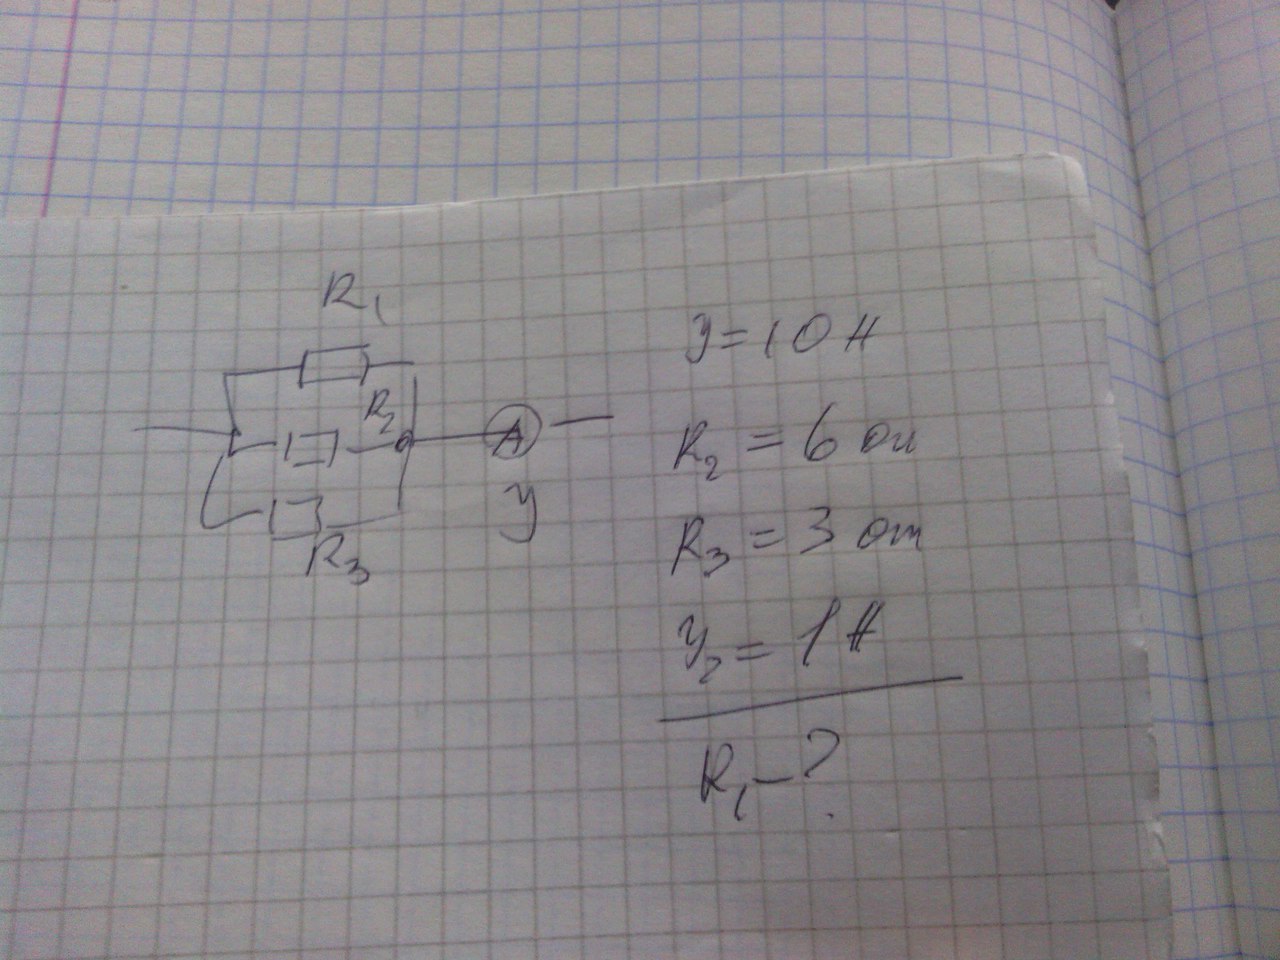 R₁
R₂
R₃
A
У
У = 10 А
R₂ = 6 ом
R₃ = 3 ом
У₂ = 1 А
R₁ – ?